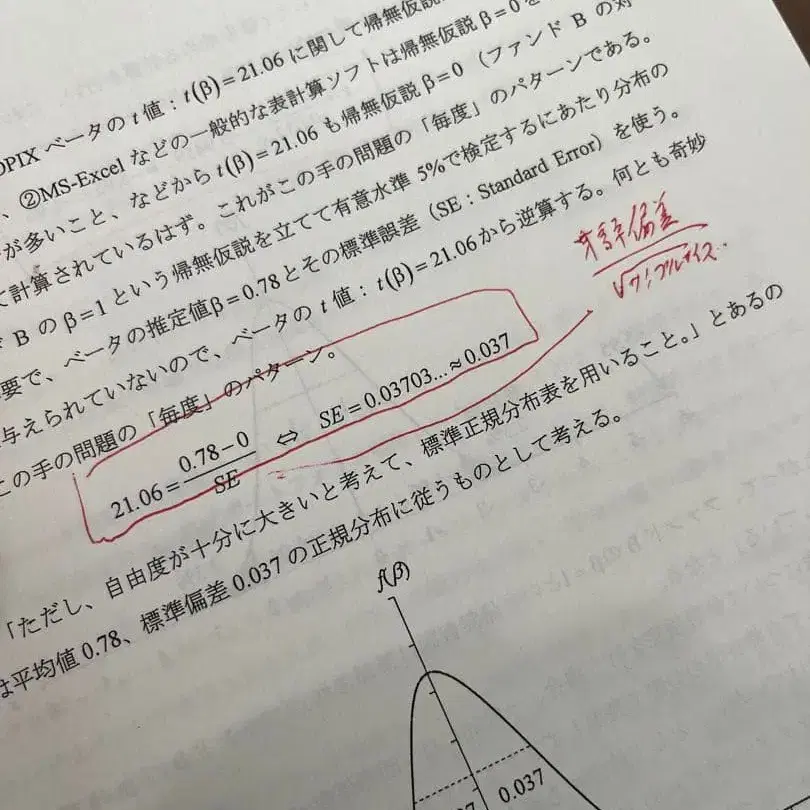 OPIX ベータの t 値：t(β)＝21.06 に関して帰無仮説
、②MS-Excel などの一般的な表計算ソフトは帰無仮説 β＝0 を
が多いこと、などから t(β)＝21.06 も帰無仮説 β＝0（ファンド B の対
て計算されているはず。これがこの手の問題の「毎度」のパターンである。
B の β＝1 という帰無仮説を立てて有意水準 5%で検定するにあたり分布の
要で、ベータの推定値β＝0.78とその標準誤差（SE：Standard Error）を使う。
与えられていないので、ベータの t 値：t(β)＝21.06から逆算する。何とも奇妙
この手の問題の「毎度」のパターン。
偏差
21.06＝(0.78−0)/SE ⇔ SE＝0.03703...≈0.037
「ただし、自由度が十分に大きいと考えて、標準正規分布表を用いること。」とあるの
は平均値 0.78、標準偏差 0.037 の正規分布に従うものとして考える。
f(β)
0.037